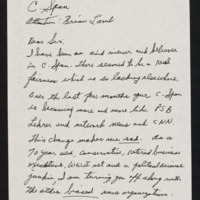 C. Span
Attention: Brian Lamb
Dear Sir:
I have been an avid viewer and listener
in C. Span. There seemed to be a real
fairness which is so lacking elsewhere.
Over the last few months your C-Span
is becoming more and more like PSB
Lehrer and network news and CNN.
This change makes me sad. As a
70 year old, conservative, retired business
and a political science
junkie I am turning you off along with
the other biased news organizations.